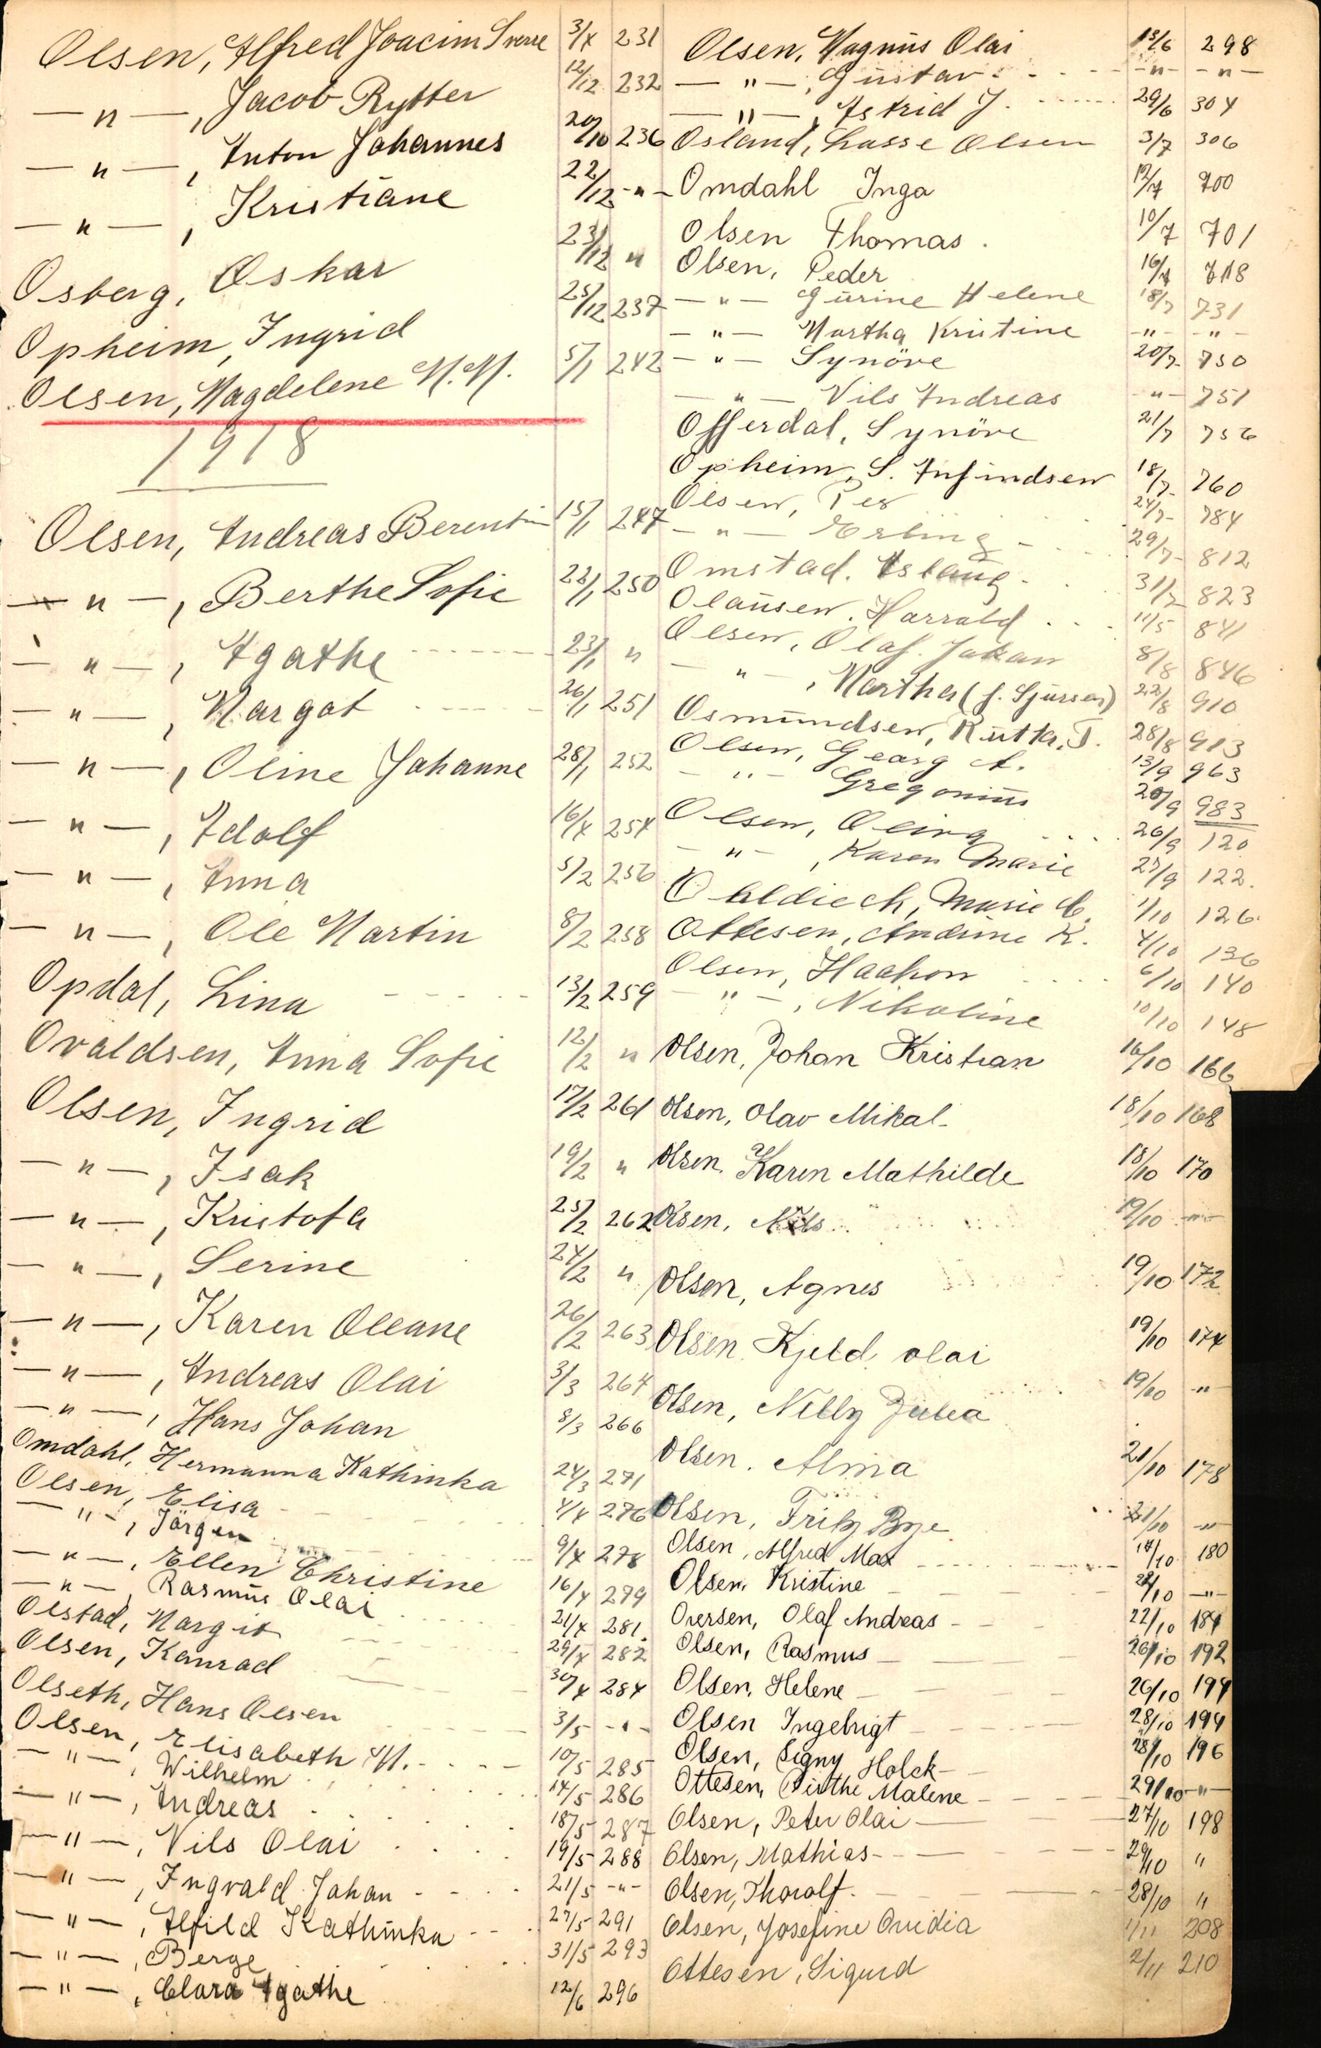 Olsen, Alfred Joacim Sverre 3/X 231
— " —, Jacob Rytter 12/12 232
— " —, Anton Johannes 20/10 236
— " —, Kristiane 22/12 - " -
Osberg, Oskar 23/12 "
Opheim, Ingrid 25/12 237
Olsen, Magdelene M. M. 5/1 242
1918
Olsen, Andreas Berentin 15/1 247
— " —, Berthe Sofie 22/1 250
— " —, Agathe 23/1 "
— " —, Margot 26/1 251
— " —, Oline Johanne 28/1 252
— " —, Adolf 16/X 254
— " —, Anna 5/2 256
— " —, Ole Martin 8/2 258
Opdal, Lina 13/2 259
Ovaldsen, Anna Sofie 12/2 "
Olsen, Ingrid 17/2 261
— " —, Isak 19/2 "
— " —, Kristofa 25/2 262
— " —, Serine 24/2 "
— " —, Karen Oleane 26/2 263
— " —, Andreas Olai 3/3 264
— " —, Hans Johan 8/3 266
Omdahl, Hermanna Kathinka 24/3 271
Olsen, Elisa 4/4 276
— " —, Jörgen 9/4 278
— " —, Ellen Christine 16/4 279
— " —, Rasmus Olai 21/4 281.
Olstad, Margit 29/4 282
Olsen, Konrad 30/4 284
Olseth, Hans Olsen 3/5 - " -
Olsen, Elisabeth M. 10/5 285
— " —, Wilhelm 14/5 286
— " —, Andreas 18/5 287
— " —, Nils Olai 19/5 288
— " —, Ingvald Johan 21/5 - " -
— " —, Alfild Kathinka 27/5 291
— " —, Berge 31/5 293
— " —, Clara Agathe 12/6 296
Olsen, Magnus Olai 13/6 298
— " —, Gustav - " - - " -
— " —, Astrid J. 29/6 304
Osland, Lasse Olsen 3/7 306
Omdahl Inga 12/7 700
Olsen Thomas. 10/7 701
Olsen, Peder 16/7 718
— " — Gurine Helene 18/7 731
— " — Martha Kristine - " - - " -
— " — Synöve 20/7 750
— " — Nils Andreas - " - 751
Offerdal, Synöve 21/7 756
Opheim, S. Anfindsen 18/7 760
Olsen, Per 24/7 784
— " — Erling 29/7 812
Omstad. Aslaug 31/7 823
Olausen, Harrald 11/5 841
Olsen, Olaf Johan 8/8 846
— " —, Martha (f. Sjursen) 22/8 910
Osmundsen, Ruth, T. 28/8 913
Olsen, Georg A. 13/9 963
— " — Gregorius 20/9 983
Olsen, Olina 26/9 120
— " —, Karen Marie 27/9 122.
Marie C. 1/10 126.
Ottesen, Andrine K. 4/10 136
Olsen, Haakon 6/10 140
— " —, Nikoline 10/10 148
Olsen, Johan Kristian 16/10 166
Olsen, Olav Mikal 18/10 168
Olsen, Karen Mathilde 18/10 170
Olsen, Nils 19/10 - " -
Olsen, Agnes 19/10 172
Olsen Kjeld olai 19/10 174
Olsen, Nelly Julia 19/10 - " -
Olsen. Alma 21/10 178
Olsen, Fritz Bye 21/10 - " -
Olsen, Alfred Max 18/10 180
Olsen, Kristine 22/10 - " -
Oversen, Olaf Andreas 22/10 184
Olsen, Rasmus 26/10 192
Olsen, Helene 26/10 194
Olsen Ingebrigt 28/10 194
Olsen, Signy Holck 28/10 196
Ottesen, Birthe Malene 29/10 - " -
Olsen, Peter Olai 27/10 198
Olsen, Mathias 29/10 "
Olsen, Thorolf 28/10 "
Olsen, Josefine Ovidia 1/11 208
Ottesen, Sigurd 2/11 210